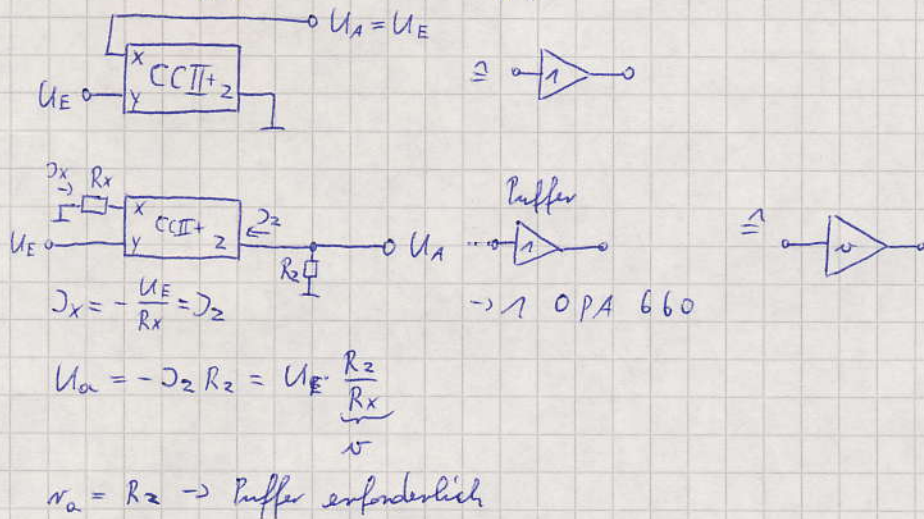 U_A = U_E
X
CCII+ Z
U_E Y
≙ 1
J_X → R_X
X
CCII+ Z
U_E Y
J_Z ←
R_Z
U_A
Puffer
1
≙ v
J_X = - U_E / R_X = J_Z
→ 1 OPA 660
U_a = - J_Z R_Z = U_E · R_Z / R_X
v
r_a = R_Z → Puffer erforderlich